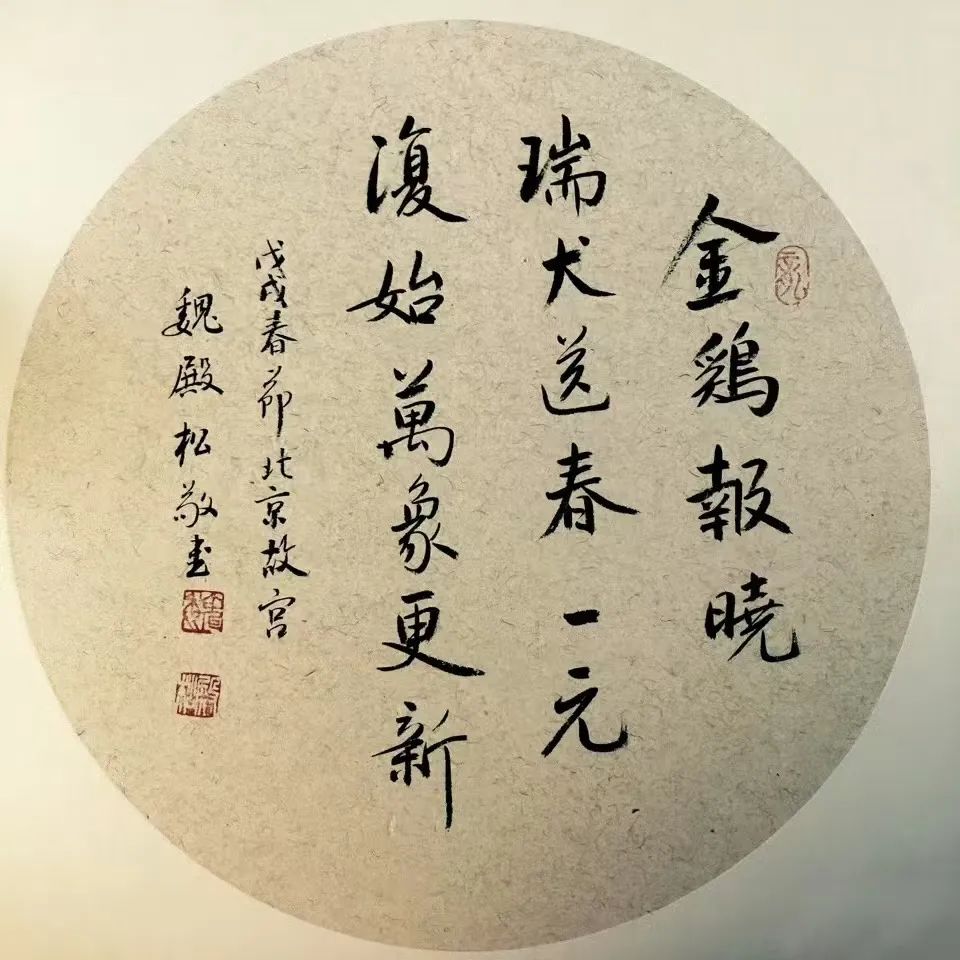 金鷄報曉
瑞犬送春一元
復始萬象更新
戊戌春节北京故宫
魏殿松敬书